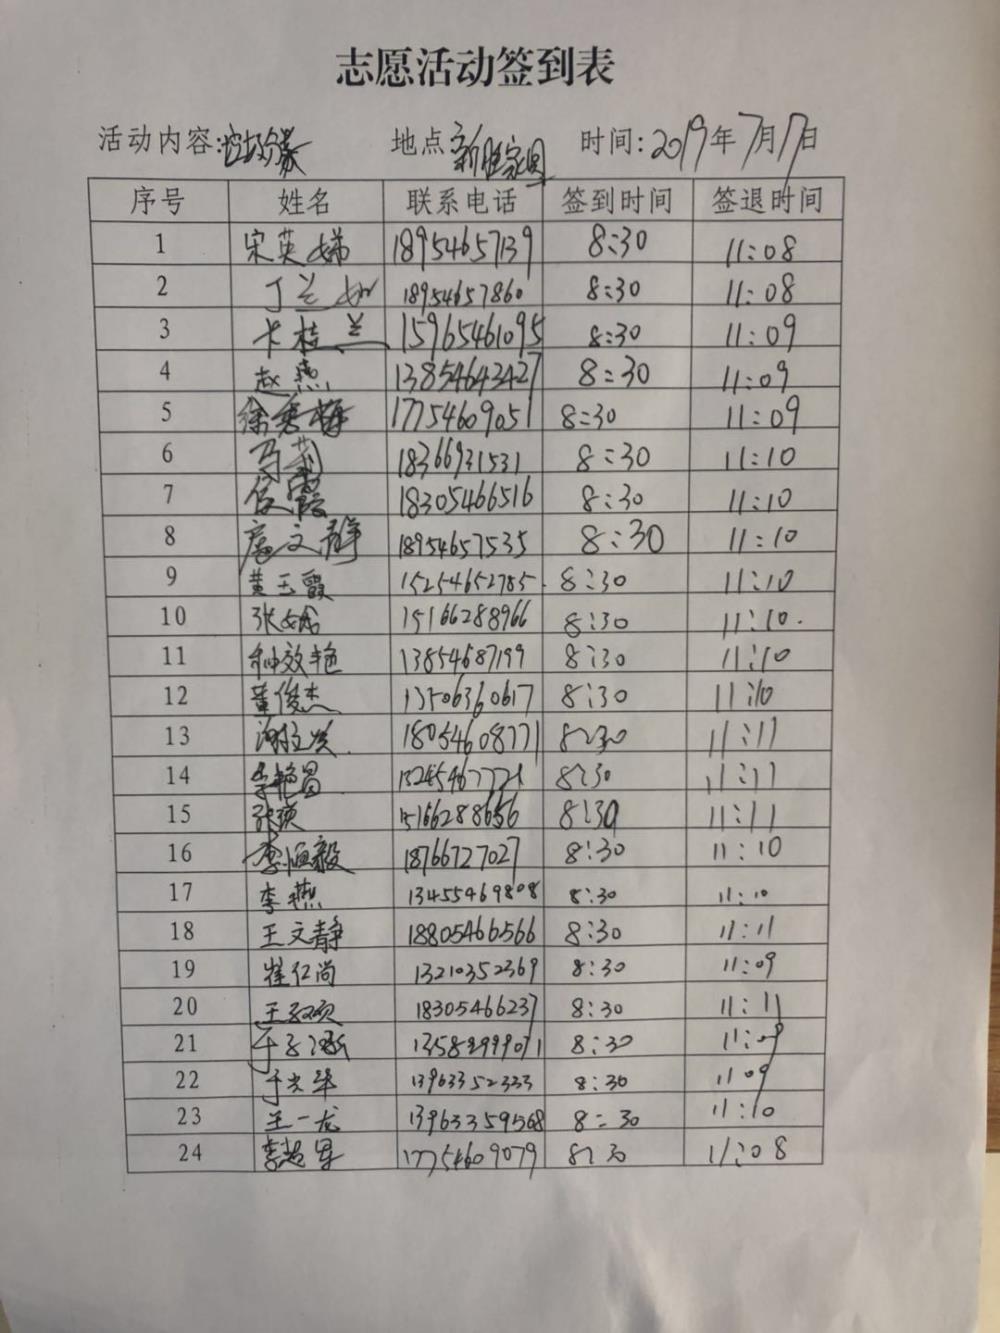 志愿活动签到表
活动内容:垃圾分类 地点 新胜家园 时间: 2019年7月17日
序号 姓名 联系电话 签到时间 签退时间
1 宋英娣 18954657139 8:30 11:08
2 丁兰如 18954657860 8:30 11:08
3 卞桂兰 15965461095 8:30 11:09
4 赵燕 13854643427 8:30 11:09
5 徐秀梅 17754609051 8:30 11:09
6 马莉 18366931531 8:30 11:10
7 侯霞 18305466516 8:30 11:10
8 扈文静 18954657535 8:30 11:10
9 黄玉霞 15254652785 8:30 11:10
10 张 15166288966 8:30 11:10
11 种效艳 13854687199 8:30 11:10
12 董俊杰 13506360617 8:30 11:10
13 18054608771 8:30 11:11
14 李艳昌 8:30 11:11
15 张瑛 15166288656 8:30 11:11
16 李恒毅 18766727027 8:30 11:10
17 李燕 13455469808 8:30 11:10
18 王文静 18805466566 8:30 11:11
19 崔仁尚 13210352369 8:30 11:09
20 王 18305466237 8:30 11:11
21 于子涵 8:30 11:09
22 于光华 13963352333 8:30 11 09
23 王一龙 13963359568 8:30 11:10
24 李超军 17754609079 8:30 11:08